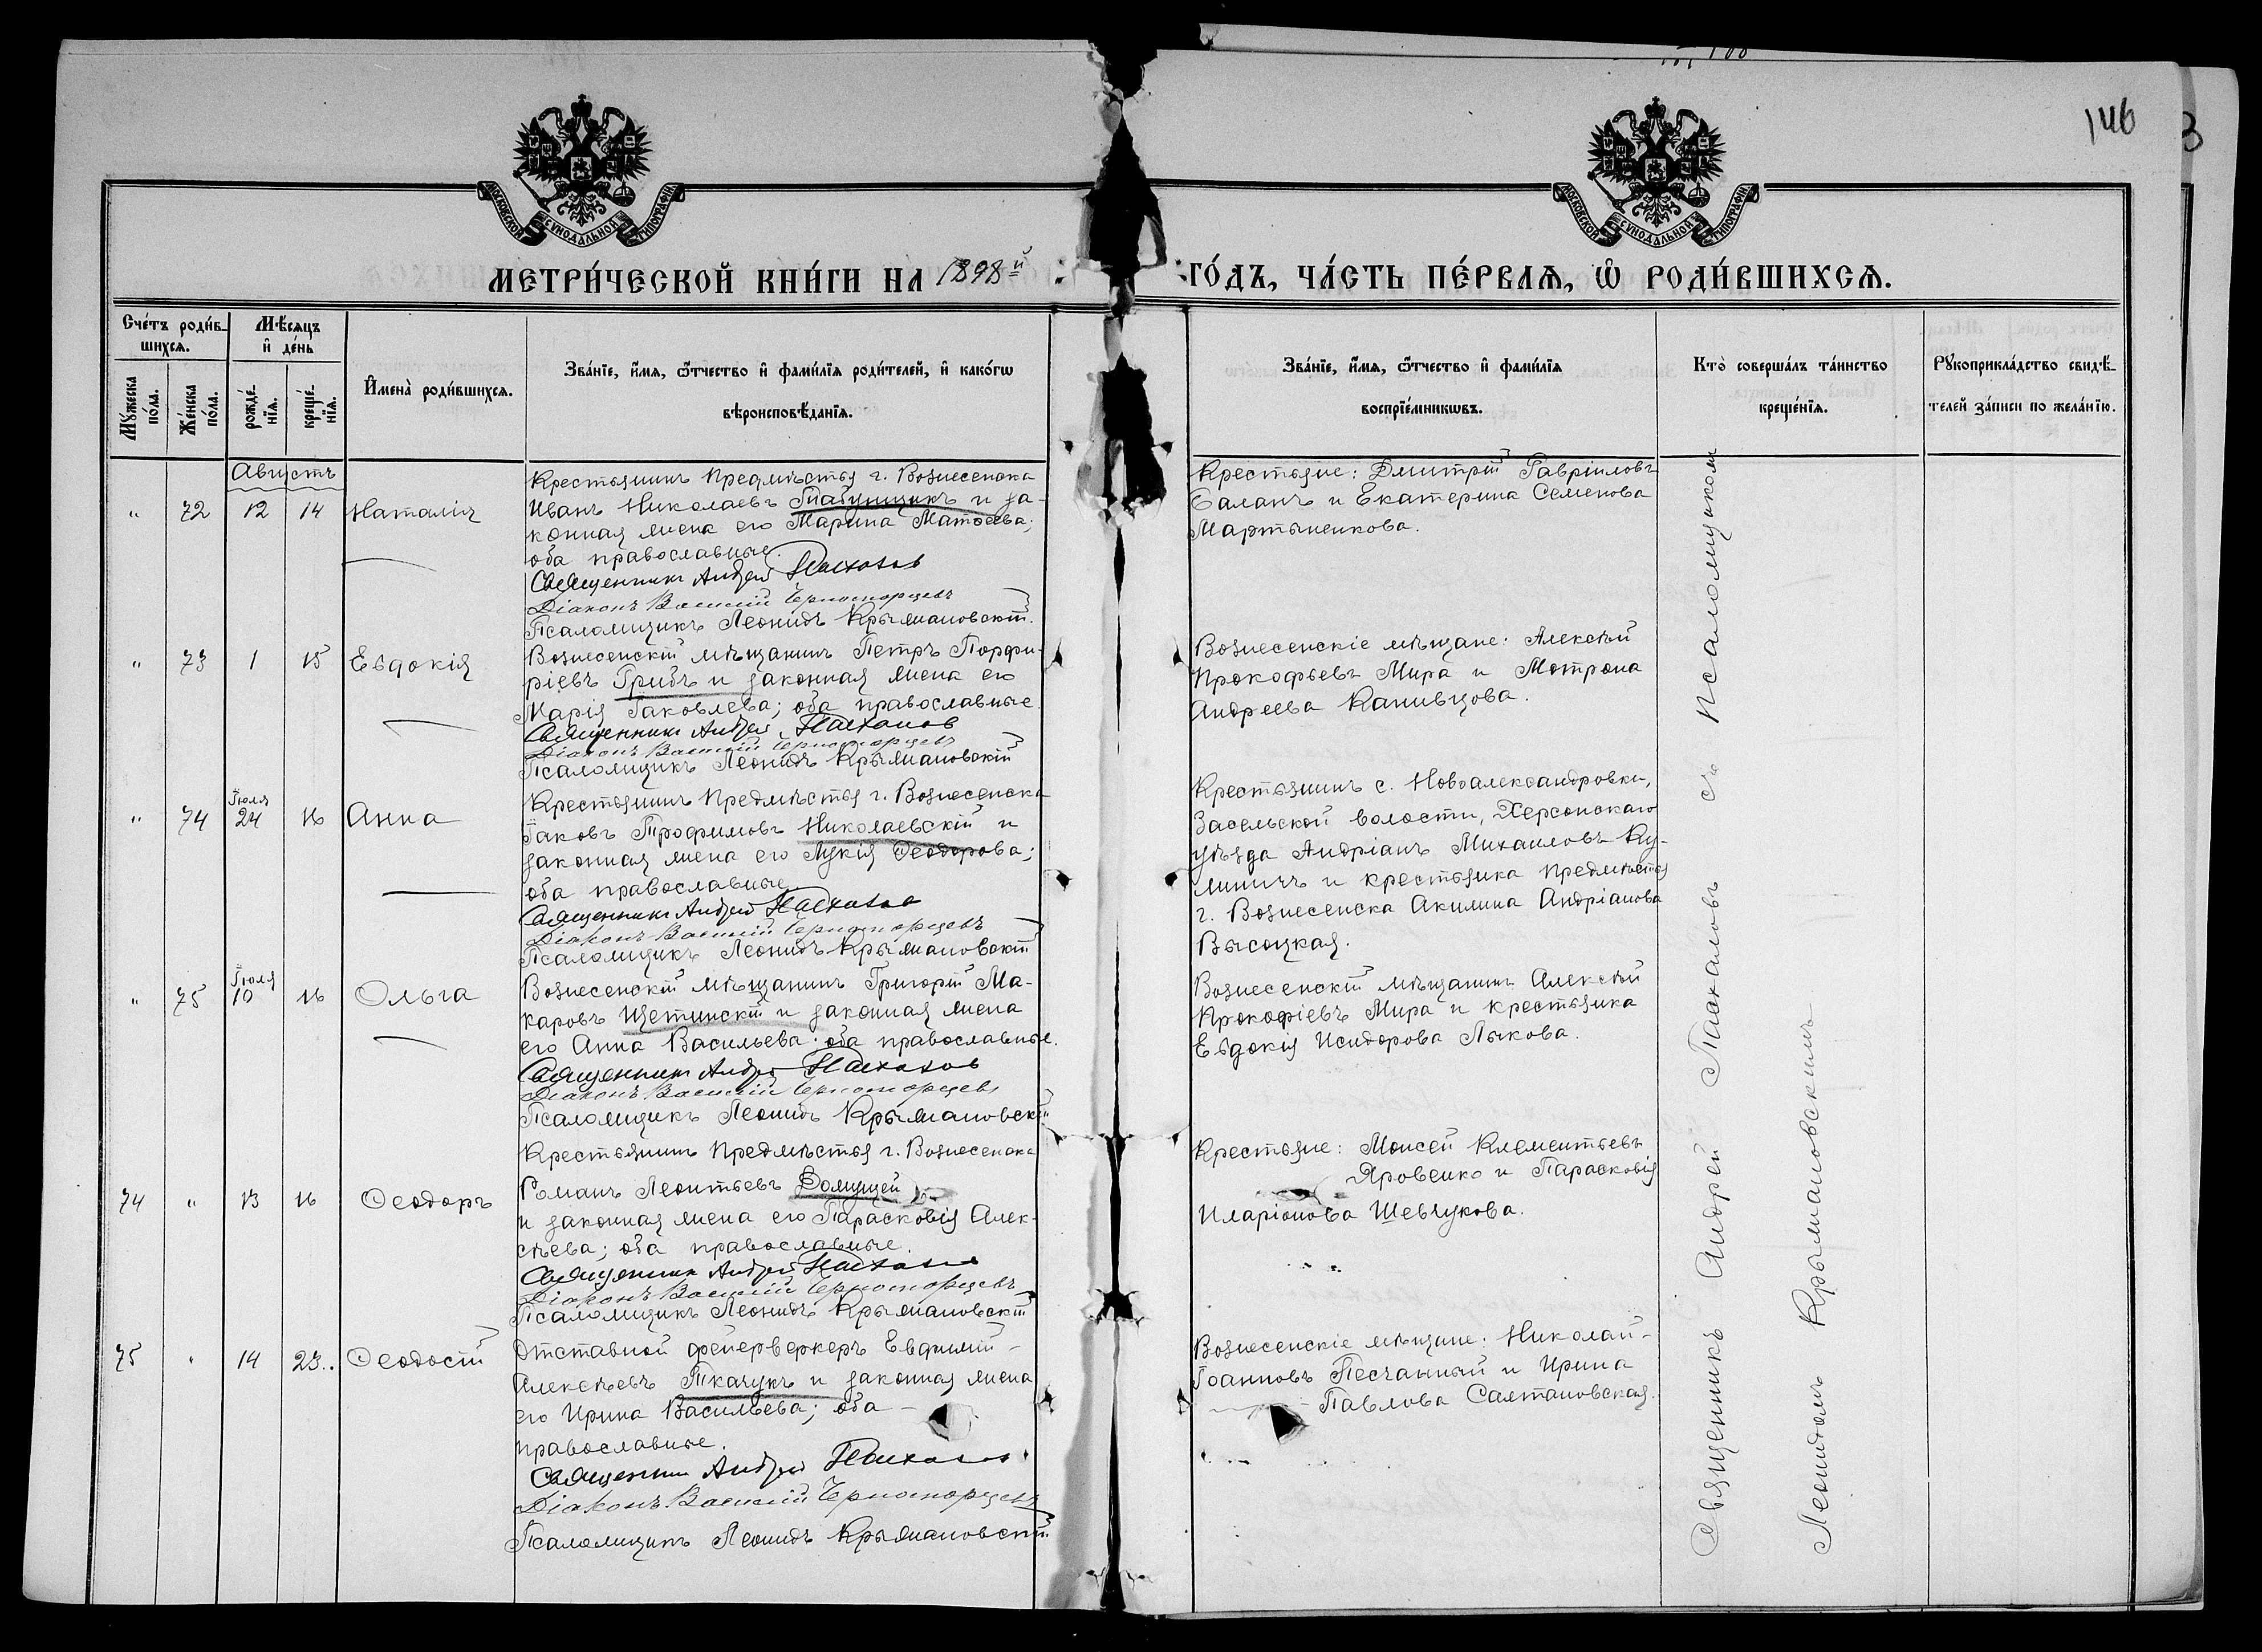 146
МОСКОВСКОЙ СѴНОДАЛЬНОЙ ТИПОГРАФІИ
МОСКОВСКОЙ СѴНОДАЛЬНОЙ ТИПОГРАФІИ
МЕТРИ́ЧЕСКОЙ КНИ́ГИ НА 1898й ГО́ДЪ, ЧА́СТЬ ПЕ́РВАѦ, Ѡ РОДИ́ВШИХСѦ.
Сче́тъ роди́в-
шихсѧ.
Мѣ́сѧцъ
и де́нь
Мꙋ́жеска
по́ла.
Же́нска
по́ла.
рожде́-
нїѧ.
креще́-
нїѧ.
Имена̀ роди́вшихсѧ.
Зва́нїе, и́мѧ, ѻ́тчество и фами́лїѧ роди́телей, и како́гѡ
вѣроисповѣ́данїѧ.
Зва́нїе, и́мѧ, ѻ́тчество и фами́лїѧ
воспрїе́мникѡвъ.
Кто̀ соверша́лъ та́инство
креще́нїѧ.
Рꙋкоприкла́дство свидѣ́-
телей за́писи по жела́нїю.
Августъ
" 72 12 14 Наталія
Крестьянинъ Предмѣстья г. Вознесенска
Иванъ Николаевъ Табунщикъ и за-
конная жена его Марина Матѳеева;
оба православные.
Священникъ Андрей
Діаконъ Василій Черноморцевъ
Псаломщикъ Леонидъ Крыжановскій.
Крестьяне: Дмитрій Гавріиловъ
Баланъ и Екатерина Семенова
Мартыненкова.
" 73 1 15 Евдокія
Вознесенскій мѣщанинъ Петръ Порфи-
ріевъ Грибъ и законная жена его
Марія Іаковлева; оба православные.
Священникъ Андрей
Діаконъ Василій Черноморцевъ
Псаломщикъ Леонидъ Крыжановскій
Вознесенскіе мѣщане: Алексѣй
Прокофьевъ Мира и Мотрона
Андреева Канивцова.
" 74 Іюля 24 16 Анна
Крестьянинъ Предмѣстья г. Вознесенска
Іаковъ Трофимовъ Николаевскій и
законная жена его Лукія Ѳеодорова;
оба православные
Священникъ Андрей
Діаконъ Василій Черноморцевъ
Псаломщикъ Леонидъ Крыжановскій
Крестьянинъ с. Новоалександровки,
Засельской волости, Херсонскаго
уѣзда Андріанъ Михаиловъ Ку-
миничъ и крестьянка предмѣстья
г. Вознесенска Акилина Андріанова
Высоцкая.
" 75 Іюля 10 16 Ольга
Вознесенскій мѣщанинъ Григорій Ма-
каровъ Щетинскій и законная жена
его Анна Васильева; оба православные.
Священникъ Андрей
Діаконъ Василій Черноморцевъ
Псаломщикъ Леонидъ Крыжановскій
Вознесенскій мѣщанинъ Алексѣй
Прокофіевъ Мира и крестьянка
Евдокія Исидорова Лыкова.
74 " 13 16 Ѳеодоръ
Крестьянинъ Предмѣстья г. Вознесенска
Романъ Леонтьевъ
и законная жена его Параскевія Алек-
сѣева; оба православные.
Священникъ Андрей
Діаконъ Василій Черноморцевъ
Псаломщикъ Леонидъ Крыжановскій
Крестьяне: Моисей Клементьевъ
Яровенко и Параскевія
Иларіонова Шевчукова.
75 " 14 23. Ѳеодосій
Отставной фейерверкеръ Евфимій
Алексѣевъ Ткачукъ и законная жена
его Ирина Васильева; оба
православные.
Священникъ Андрей
Діаконъ Василій Черноморцевъ
Псаломщикъ Леонидъ Крыжановскій
Вознесенскіе мѣщане: Николай
Іоанновъ Песчанный и Ирина
Павлова Салтановская.
Священникъ Андрей съ псаломщикомъ
Леонидомъ Крыжановскимъ